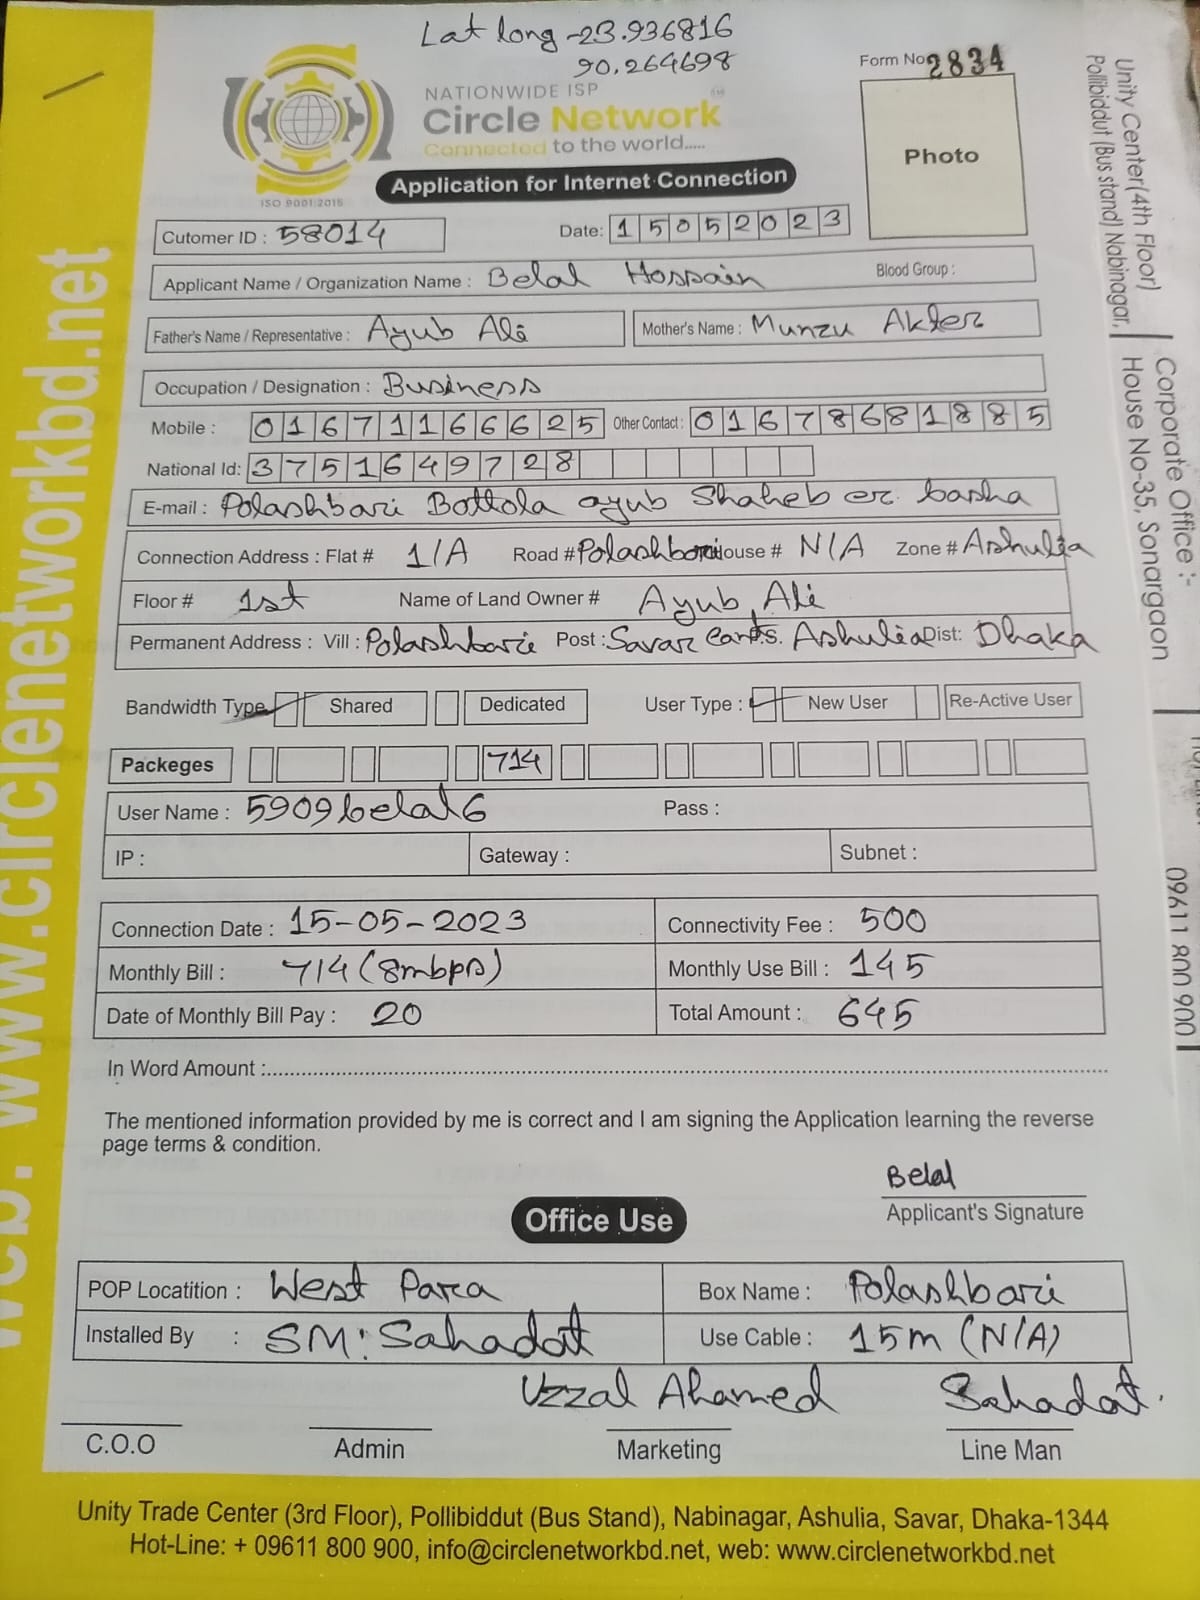 Lat long -23.936816
90.264698
Form No 2834
NATIONWIDE ISP
Circle Network
Connected to the world.....
ISO 9001:2015
Application for Internet Connection
Photo
Cutomer ID : 58014
Date: 15052023
Applicant Name / Organization Name : Belal Hossain Blood Group :
Father's Name / Representative : Ayub Ali Mother's Name : Munzu Akter
Occupation / Designation : Business
Mobile : 01671166625 Other Contact : 01678681885
National Id: 3751649728
E-mail : Polashbari Bottola ayub Shaheb er. basha
Connection Address : Flat # 1/A Road # Polashbari House # N/A Zone # Ashulia
Floor # 1st Name of Land Owner # Ayub Ali
Permanent Address : Vill : Polashbari Post : Savar Cant P.S. Ashulia Dist: Dhaka
Bandwidth Type Shared Dedicated User Type : New User Re-Active User
Packeges 714
User Name : 5909belal6 Pass :
IP : Gateway : Subnet :
Connection Date : 15-05-2023 Connectivity Fee : 500
Monthly Bill : 714 (8mbps) Monthly Use Bill : 145
Date of Monthly Bill Pay : 20 Total Amount : 645
In Word Amount :
The mentioned information provided by me is correct and I am signing the Application learning the reverse
page terms & condition.
Belal
Applicant's Signature
Office Use
POP Locatition : West Para Box Name : Polashbari
Installed By : SM: Sahadat Use Cable : 15m (N/A)
Uzzal Ahamed Sahadat.
C.O.O Admin Marketing Line Man
Unity Trade Center (3rd Floor), Pollibiddut (Bus Stand), Nabinagar, Ashulia, Savar, Dhaka-1344
Hot-Line: + 09611 800 900, info@circlenetworkbd.net, web: www.circlenetworkbd.net
web: www.circlenetworkbd.net
Unity Center(4th Floor)
Pollibiddut (Bus stand) Nabinagar,
Corporate Office :-
House No-35, Sonargaon
09611 800 900